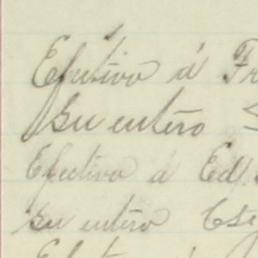 Efectivo á Fr
su entero
Efectivo á Ed.
su entero